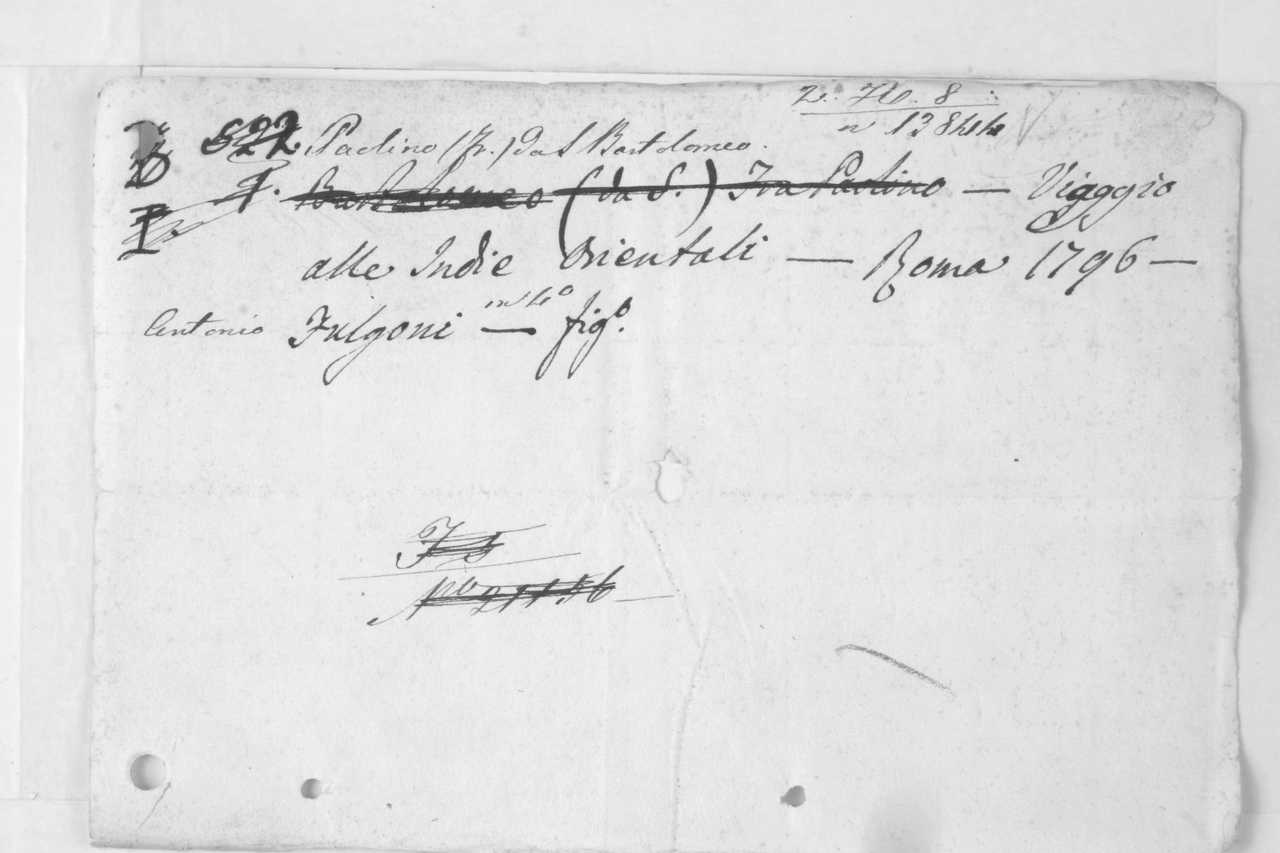 Z. IV. 8
n 13844
522 Paolino (Fr.) da S Bartolomeo.
Bartolomeo (da S.) Fra Paolino — Viaggio
alle Indie Orientali — Roma 1796 —
Antonio Fulgoni — in 4º figº.